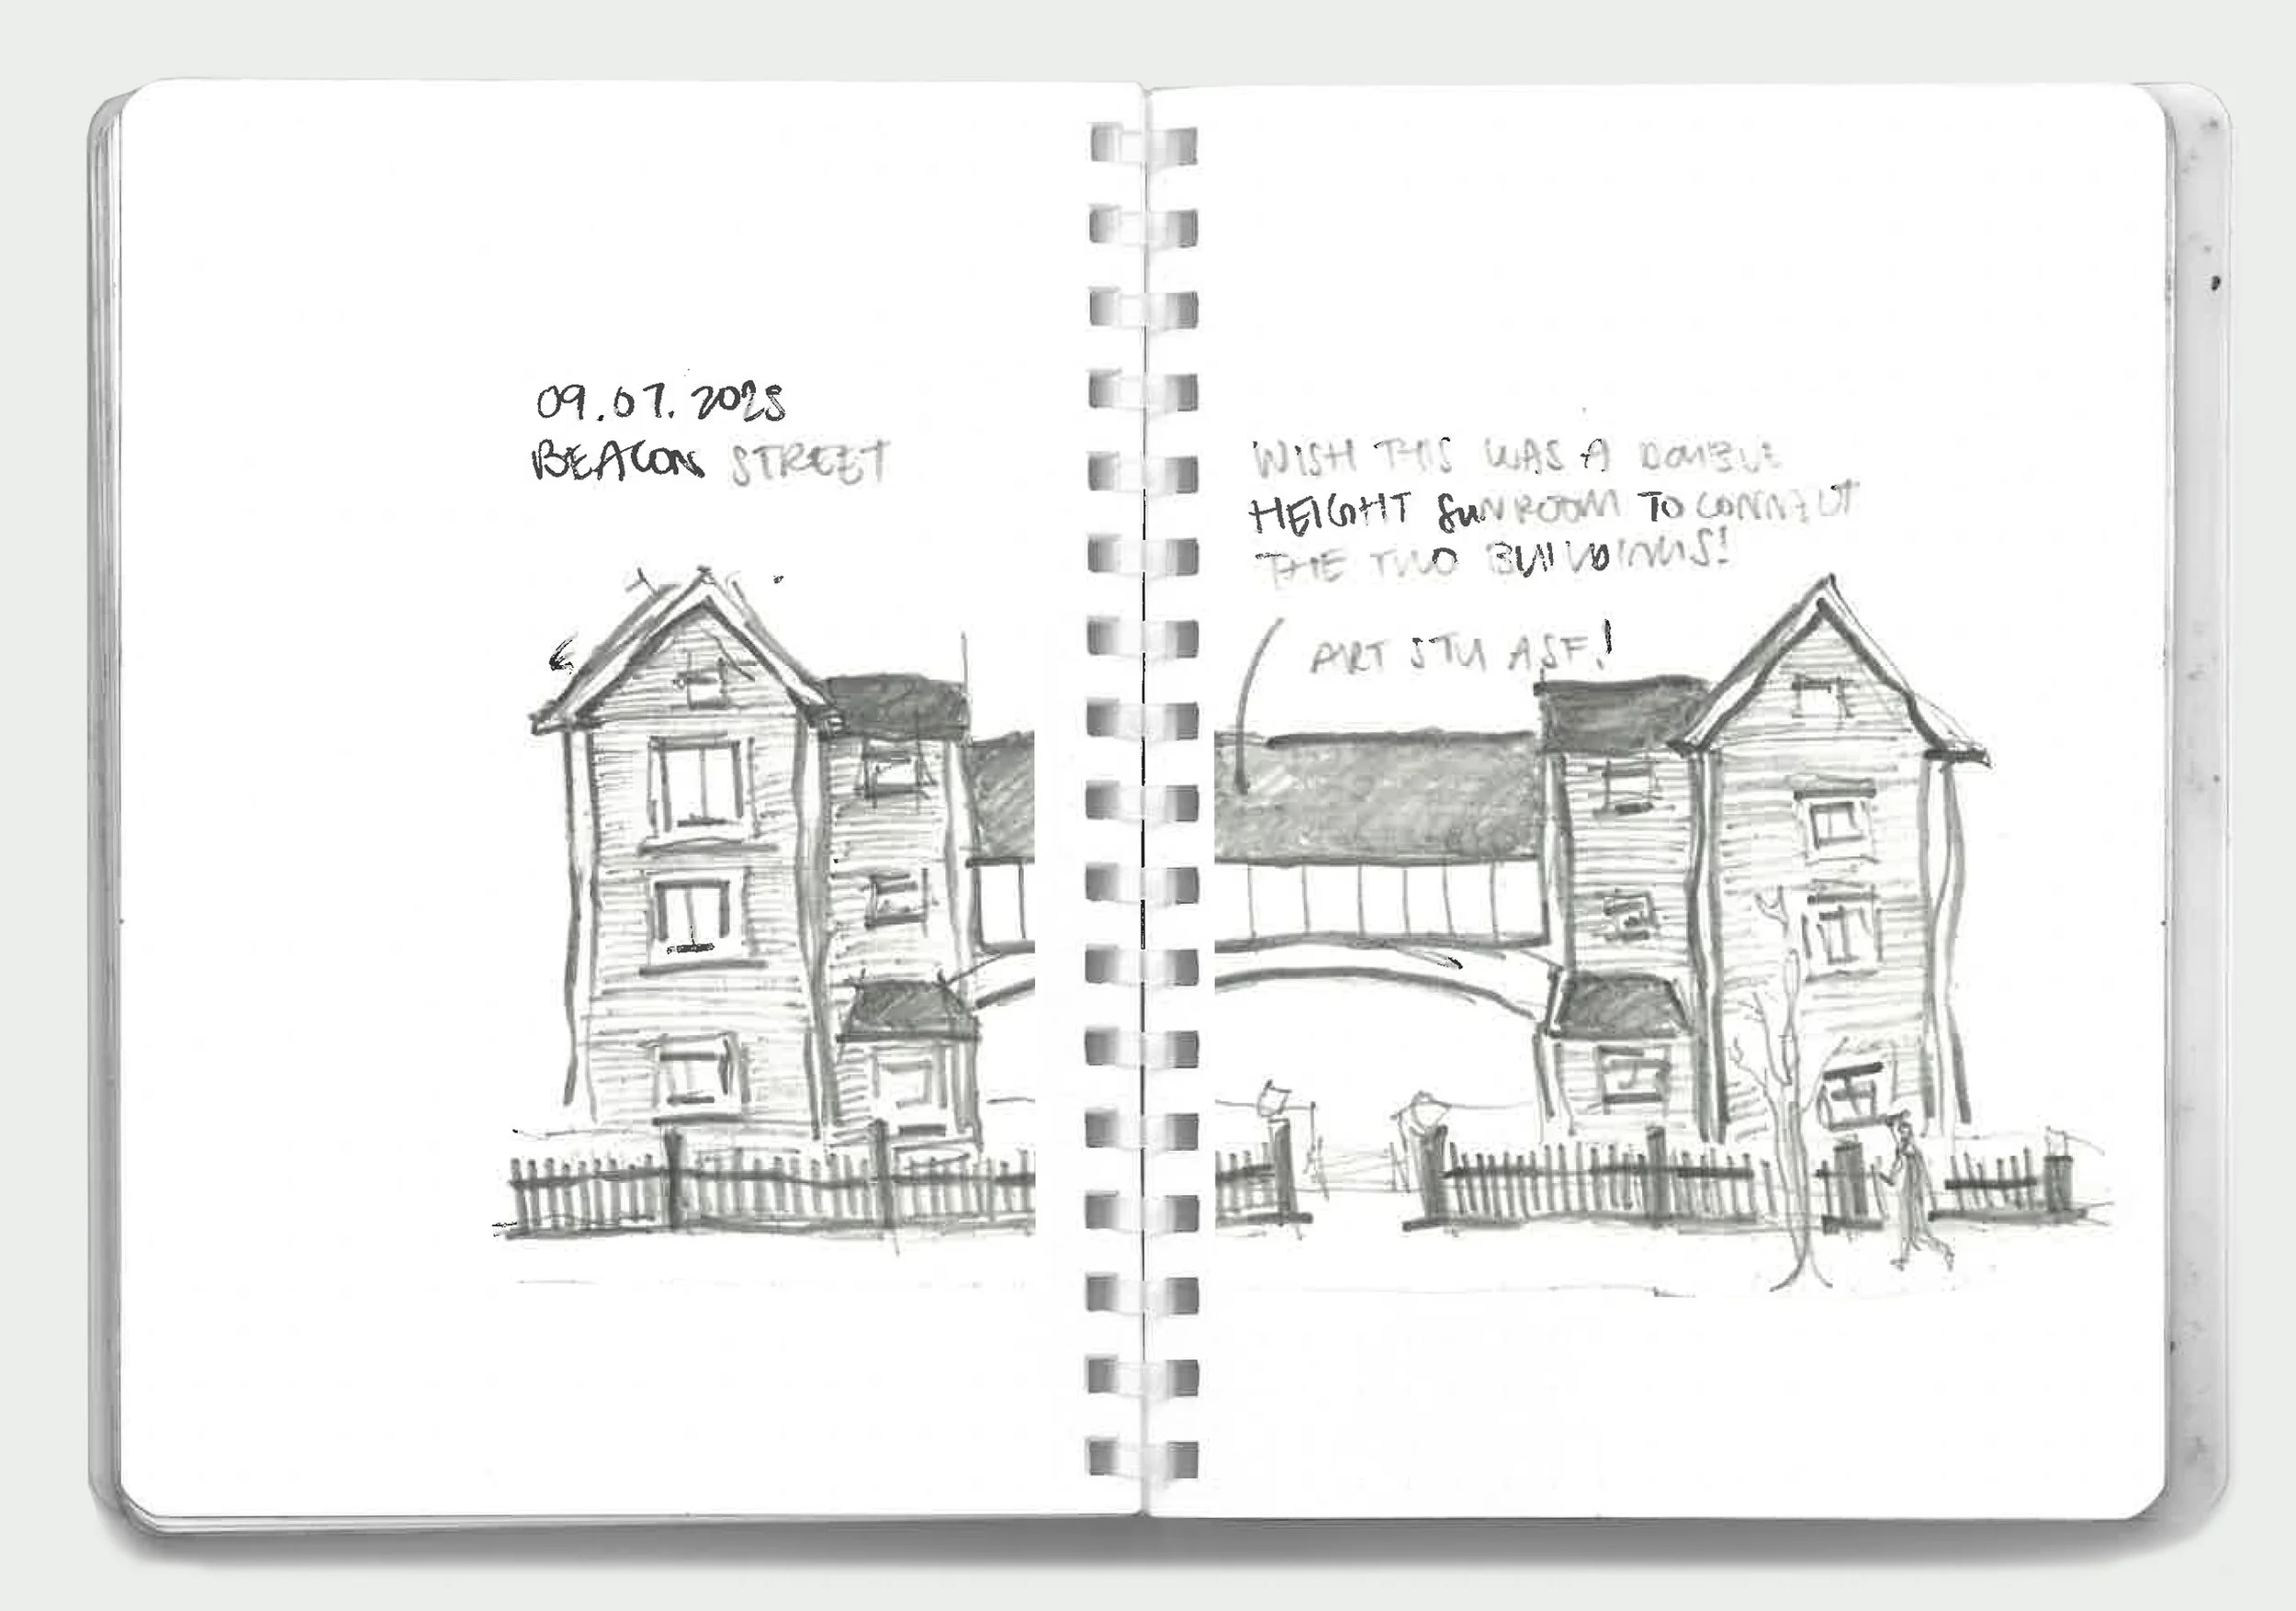 09.07.2025
BEACON STREET
WISH THIS WAS A DOUBLE
HEIGHT SUNROOM TO CONNECT
THE TWO BUILDINGS!
ART STU ASF!